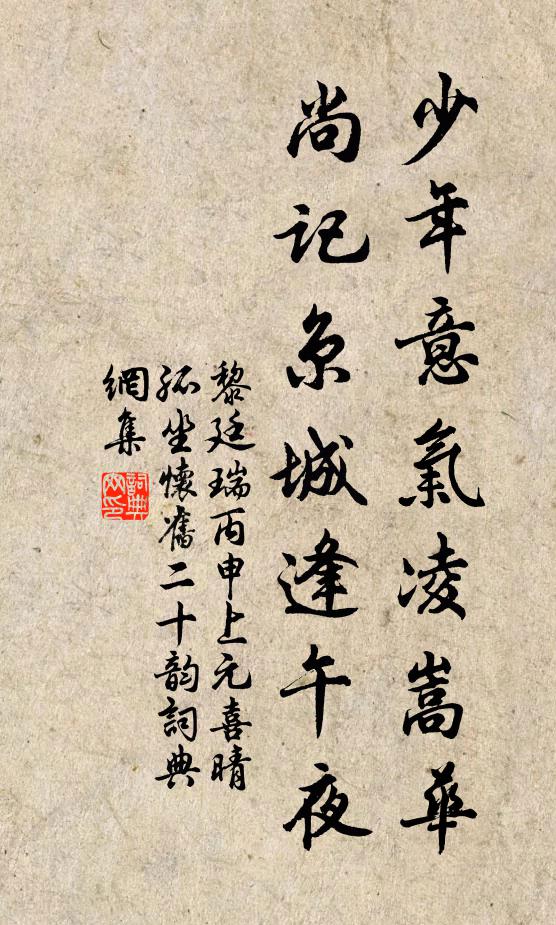 少年意氣凌嵩華
尚記京城逢午夜
黎廷瑞丙申上元喜晴
孤坐懷舊二十韵詞典
網集
詞典網印